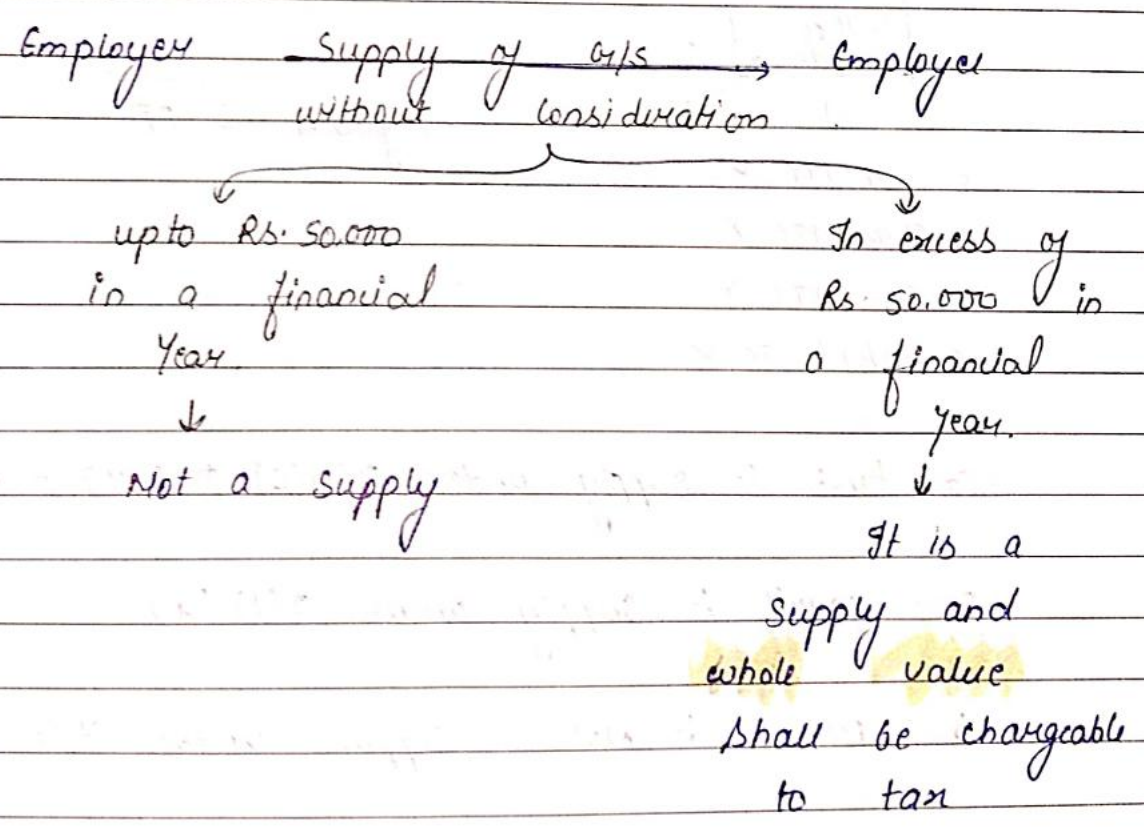 Employer Supply of G/S → Employee
without consideration
upto Rs. 50,000
in a financial
Year.
↓
Not a supply
In excess of
Rs. 50,000 in
a financial
year.
↓
It is a
supply and
whole value
shall be chargeable
to tax